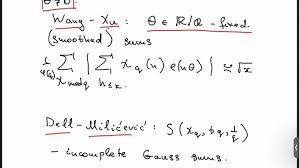 θ≠0
Wang - Xu : θ ∈ ℝ/ℚ - fixed.
(smoothed) sums
1/φ(q) Σ_{χ mod q} | Σ_{n≤x} χ_q(n) e(nθ) | ≍ √x
Dell - Milićević : S(χ_q, bq, 1/q)
- incomplete Gauss sums.